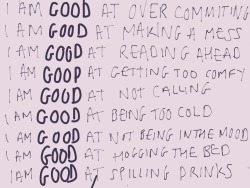 I AM GOOD AT OVER COMMITING
I AM GOOD AT MAKING A MESS
I AM GOOD AT READING AHEAD
I AM GOOP AT GETTING TOO COMFY
I AM GOOD AT NOT CALLING
I AM GOOD AT BEING TOO COLD
I AM GOOD AT NOT BEING IN THE MOOD
I AM GOOD AT HOGGING THE BED
I AM GOOD AT SPILLING DRINKS